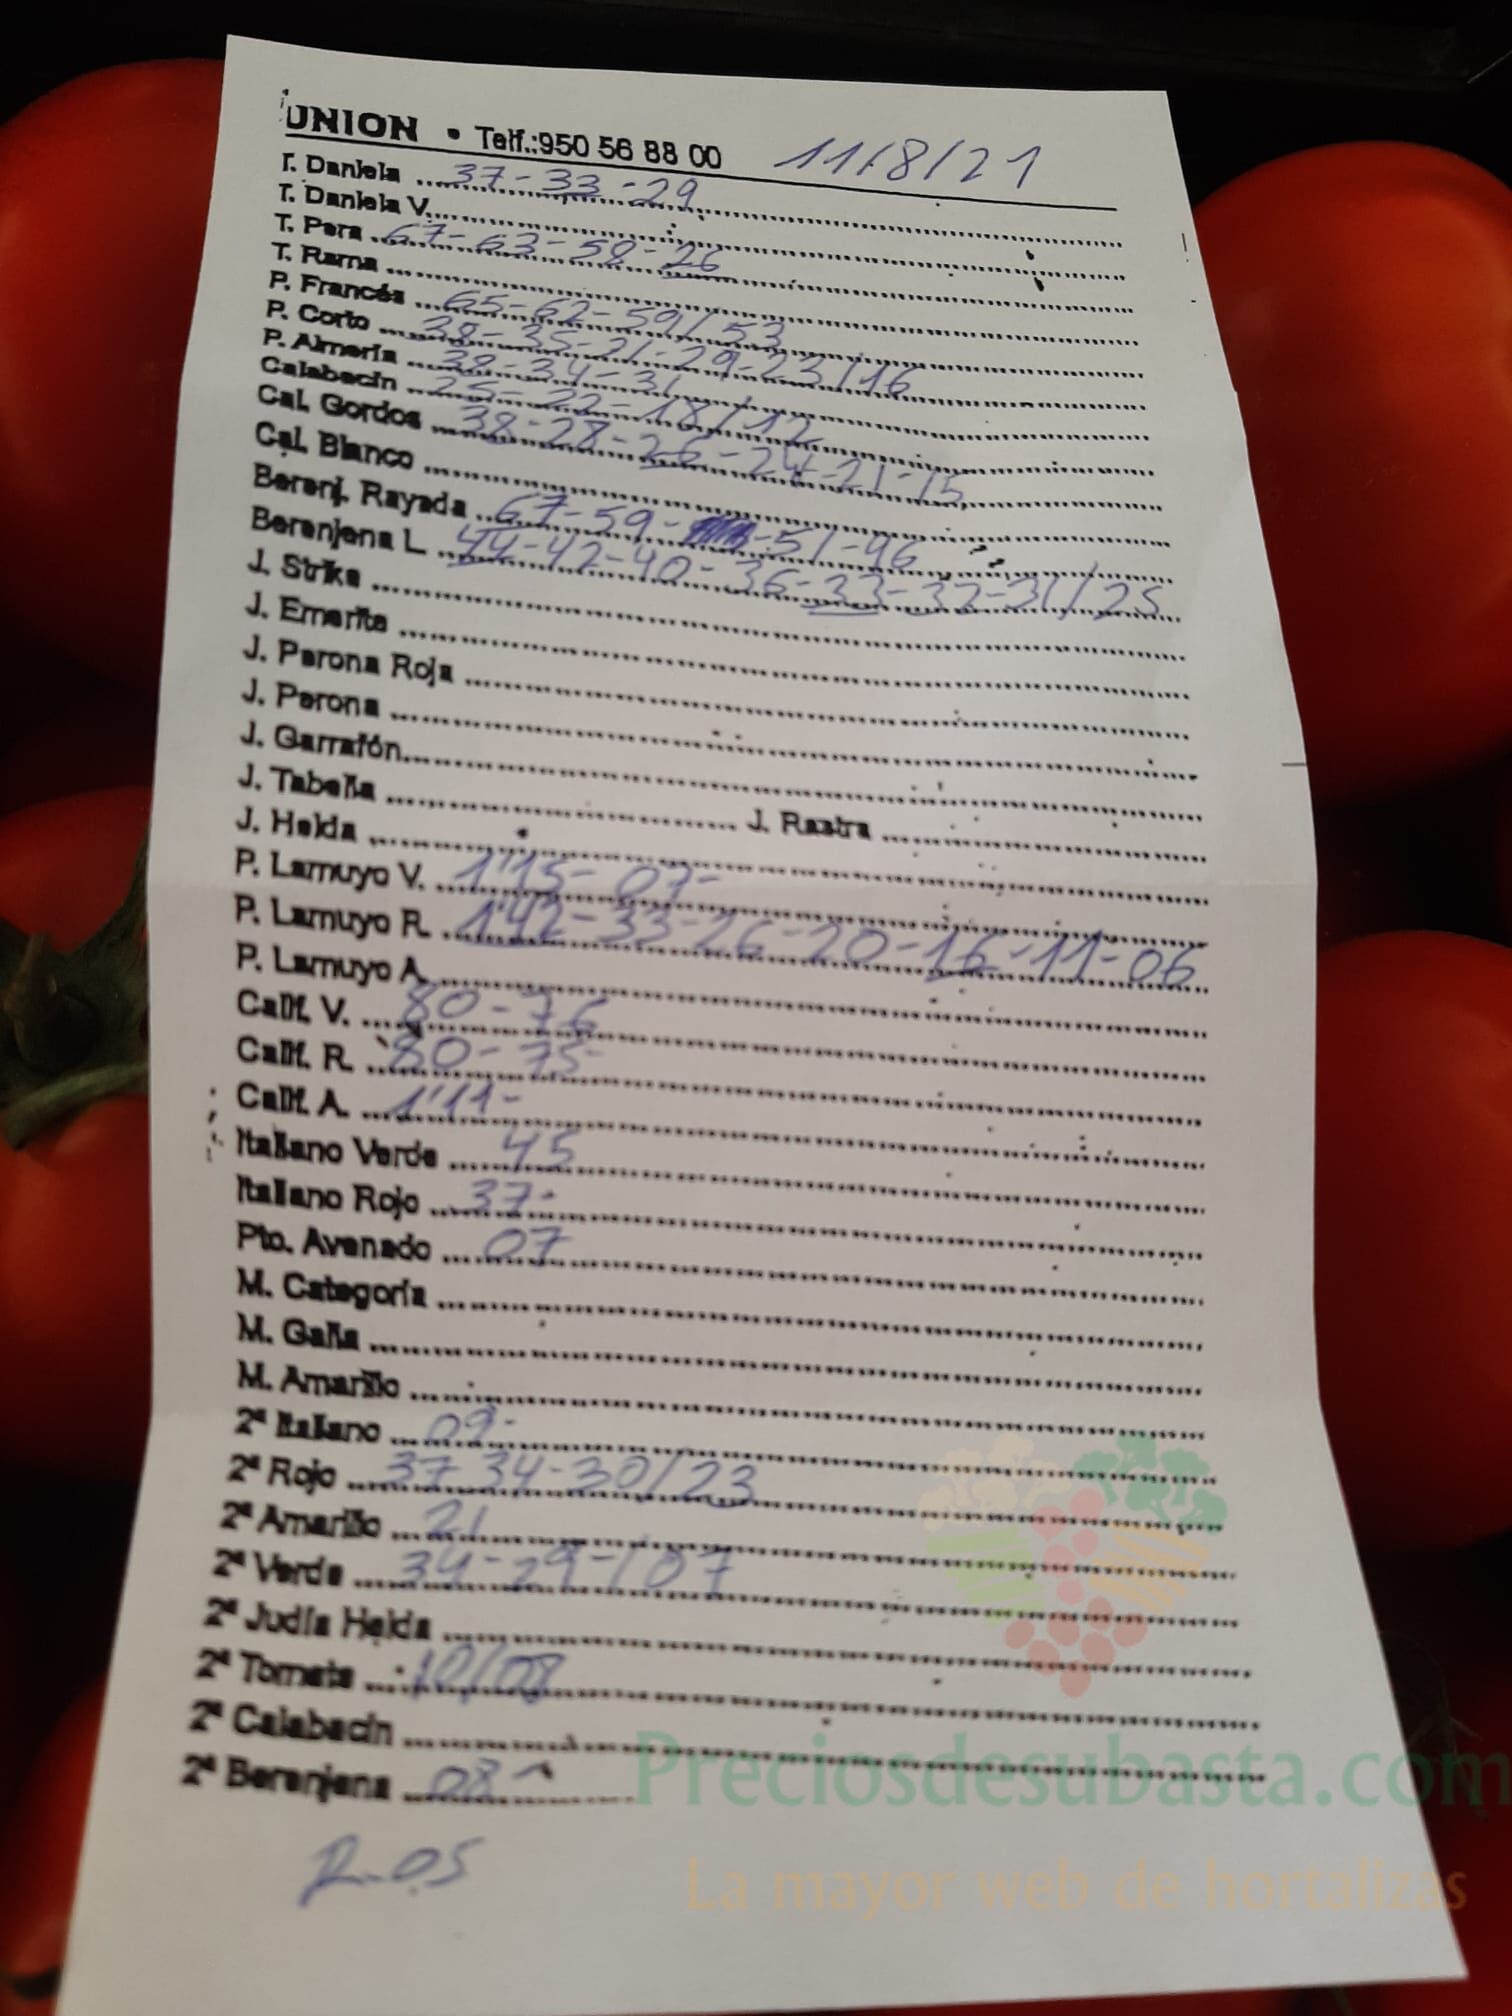 UNION • Telf.:950 56 88 00 11/8/21
T. Daniela 37-33-29
T. Daniela V.
T. Pera 67-63-58-26
T. Rama
P. Francés 65-62-59/53
P. Corto 38-35-21-29-23/16
P. Almería 38-34-31
Calabacín 25-22-18/12
Cal. Gordos 38-28-26-24-21-15
Cal. Blanco
Berenj. Rayada 67-59- -51-46
Berenjena L. 44-42-40-36-33-32-31/25
J. Strike
J. Emerite
J. Perona Roja
J. Perona
J. Garrafón
J. Tabella J. Rastra
J. Helda
P. Lamuyo V. 1'15-07-
P. Lamuyo R. 1'42-33-26-20-16-11-06
P. Lamuyo A.
Calif. V. 80-76
Calif. R. 80-75
Calif. A. 1'11-
Italiano Verde 45
Italiano Rojo 37-
Pto. Avenado 07
M. Categoría
M. Galia
M. Amarillo
2ª Italiano 09-
2ª Rojo 37-34-30/23
2ª Amarillo 21
2ª Verde 34-29-/07
2ª Judía Helda
2ª Tomate 10/08
2ª Calabacín
2ª Berenjena 08
R-05
Preciosdesubasta.com
La mayor web de hortalizas